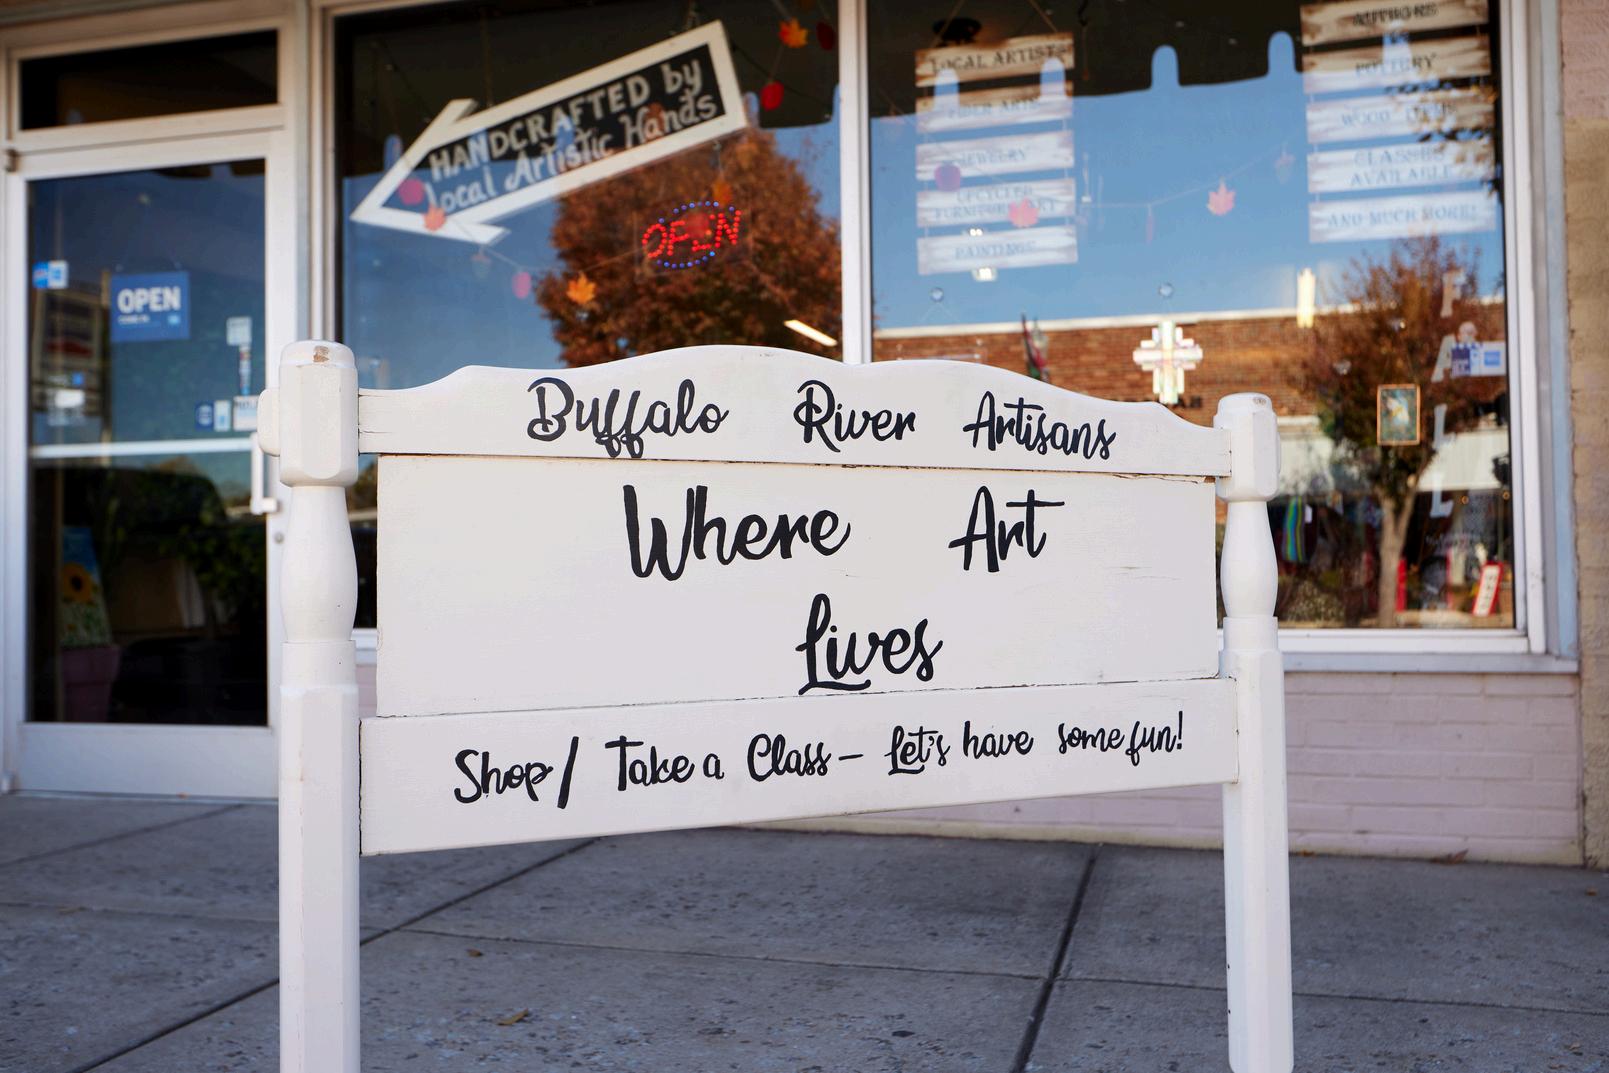 HANDCRAFTED by
Local Artistic Hands
OPEN
OPEN
LOCAL ARTISTS
FIBER ARTS
JEWELRY
UPCYCLED
FURNITURE ART
PAINTINGS
AUTHORS
POTTERY
WOOD ITEMS
CLASSES
AVAILABLE
AND MUCH MORE!
Buffalo River Artisans
Where Art
Lives
Shop/ Take a Class - Let's have some fun!